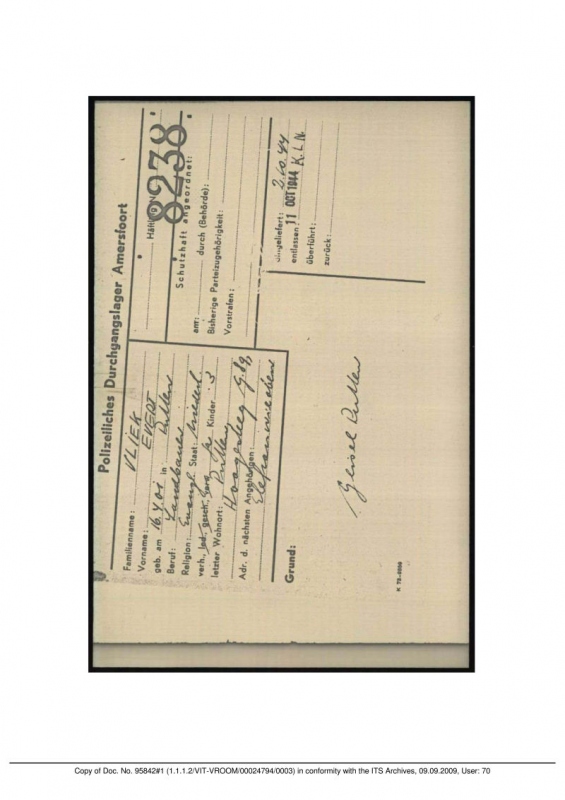 Polizeiliches Durchgangslager Amersfoort
Familienname: VLIEK
Vorname: EVERT
geb. am 16.4.01 in Putten
Beruf: Landbauer
Religion: Evangl. Staat: Niederl.
verh., led. gesch. Kinder 3
letzter Wohnort: Putten
Adr. d. nächsten Angehörigen:
Häftling
8238
Schutzhaft angeordnet:
am: durch (Behörde):
Bisherige Parteizugehörigkeit:
Vorstrafen:
eingeliefert: 2.10.44
entlassen: 11 OCT 1944 K.L.N.
überführt:
zurück:
Grund:
Geisel Putten
Copy of Doc. No. 95842#1 (1.1.1.2/VIT-VROOM/00024794/0003) in conformity with the ITS Archives, 09.09.2009, User: 70